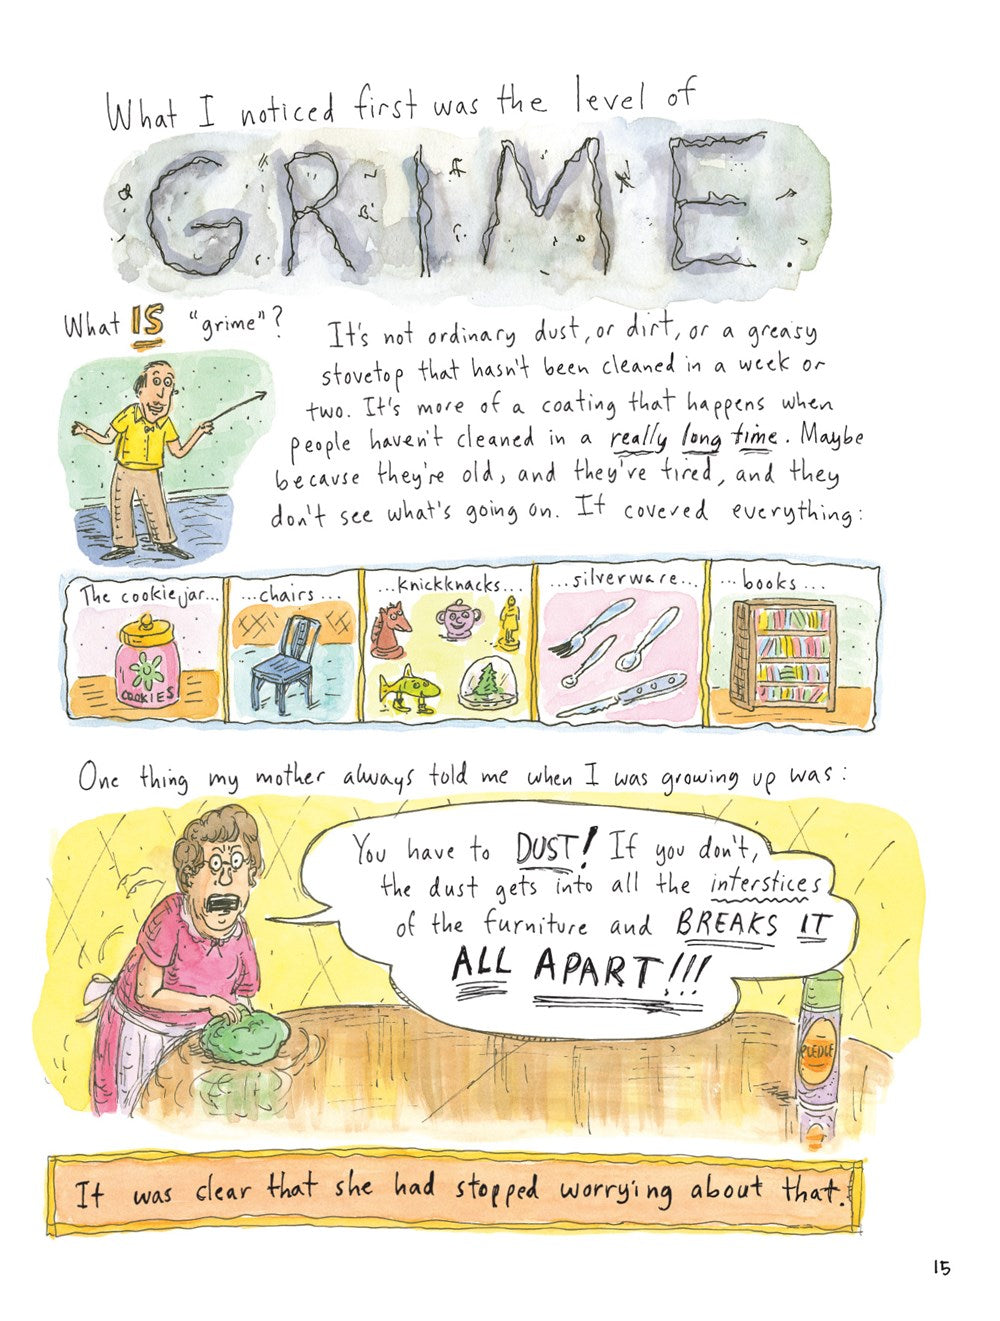 What I noticed first was the level of
GRIME
What IS "grime"?
It's not ordinary dust, or dirt, or a greasy
stovetop that hasn't been cleaned in a week or
two. It's more of a coating that happens when
people haven't cleaned in a really long time. Maybe
because they're old, and they've tired, and they
don't see what's going on. It covered everything:
The cookie jar...
...chairs...
...knickknacks...
...silverware...
...books...
COOKIES
One thing my mother always told me when I was growing up was:
You have to DUST! If you don't,
the dust gets into all the interstices
of the furniture and BREAKS IT
ALL APART!!!
PLEDGE
It was clear that she had stopped worrying about that.
15